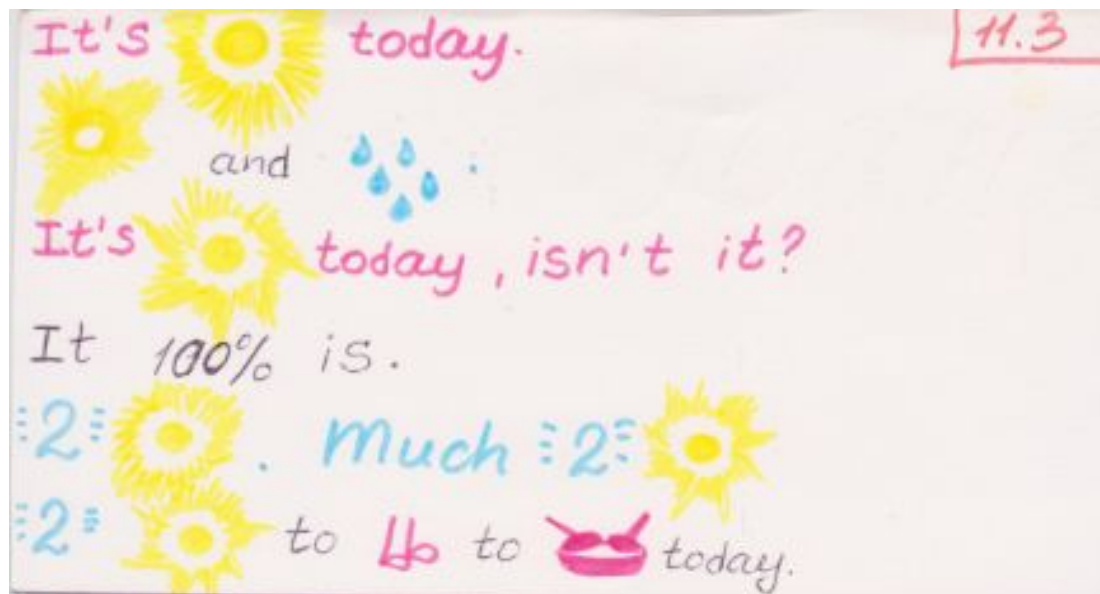 It's today.
11.3
and .
It's today, isn't it?
It 100% is.
2 . Much 2
2 to to today.